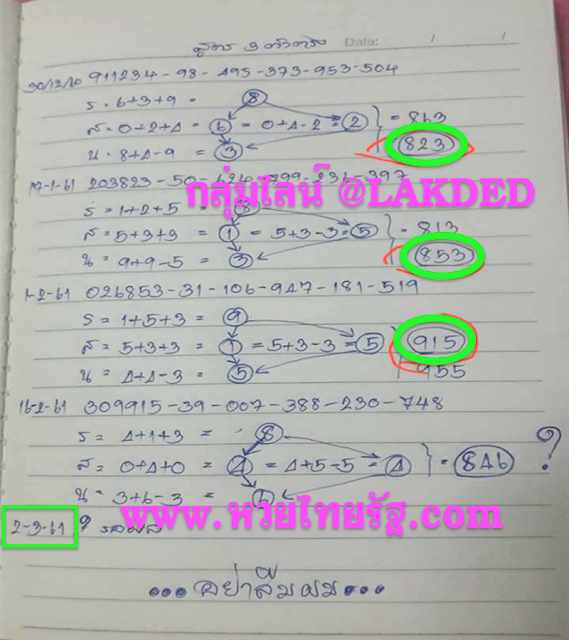 สูตร 3 ตัวตรง Date: / /
30/12/60 911234-98-495-373-953-504
ร = 6+3+9 = 8
ส = 0+2+4 = 6 = 0+4-2 = 2 } = 863
น = 8+4-9 = 3 823
17-1-61 203823-50-424-799-231-397
กลุ่มไลน์ @LAKDED
ร = 1+2+5 = 8
ส = 5+3+3 = 1 = 5+3-3 = 5 } = 813
น = 9+9-5 = 3 853
1-2-61 026853-31-106-947-181-519
ร = 1+5+3 = 9
ส = 5+3+3 = 1 = 5+3-3 = 5 915
น = 4+4-3 = 5 955
16-2-61 309915-39-007-388-230-748
ร = 4+1+3 = 8
ส = 0+4+0 = 4 = 4+5-5 = 4 } = 846 ?
น = 3+6-3 = 6
www.หวยไทยรัฐ.com
2-3-61 ? รอผล
...อย่าลืมผม...